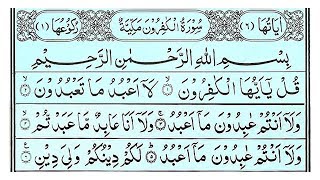 اٰيَاتُهَا (٦) سُوْرَةُ الْكٰفِرُوْنَ مَكِّيَّةٌ رُكُوْعُهَا (١)
بِسْمِ اللّٰهِ الرَّحْمٰنِ الرَّحِيْمِ
قُلْ يٰٓاَيُّهَا الْكٰفِرُوْنَ ۙ ١ لَاۤ اَعْبُدُ مَا تَعْبُدُوْنَ ۙ ٢
وَلَاۤ اَنْتُمْ عٰبِدُوْنَ مَاۤ اَعْبُدُ ۚ ٣ وَلَاۤ اَنَا عَابِدٌ مَّا عَبَدْتُّمْ ۙ ٤
وَلَاۤ اَنْتُمْ عٰبِدُوْنَ مَاۤ اَعْبُدُ ؕ ٥ لَكُمْ دِيْنُكُمْ وَلِيَ دِيْنِ ٦